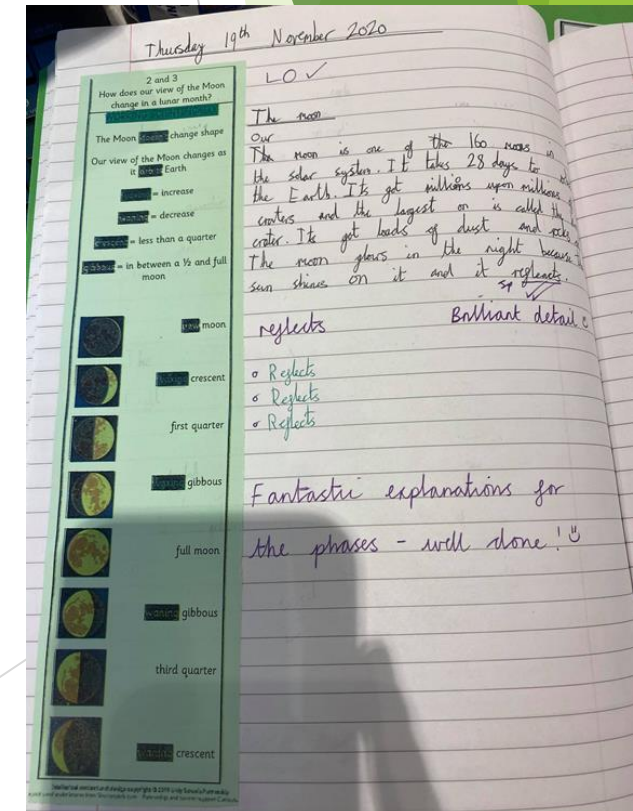 Thursday 19th November 2020
2 and 3
How does our view of the Moon
change in a lunar month?
The Moon doesn't change shape
Our view of the Moon changes as
it orbits Earth
= increase
waning = decrease
crescent = less than a quarter
gibbous = in between a ½ and full
moon
new moon
crescent
first quarter
waxing gibbous
full moon
waning gibbous
third quarter
crescent
LO ✓
The moon
Our
The Moon is one of the 160 moons in
the solar system. It takes 28 days to
the Earth. Its got millions upon millions
craters and the largest on is called the
crater. Its got loads of dust and rocks
The moon glows in the night because
sun shines on it and it refleacts.
sp
reflects
Brilliant detail
Reflects
Reflects
Reflects
Fantastic explanations for
the phases - well done!